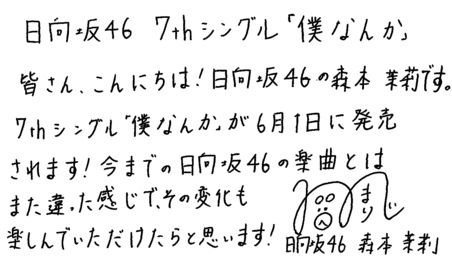 日向坂46 7thシングル「僕なんか」
皆さん、こんにちは！日向坂46の森本 茉莉です。
7thシングル「僕なんか」が6月1日に発売
されます！今までの日向坂46の楽曲とは
また違った感じで、その変化も
楽しんでいただけたらと思います！
まりぃ
日向坂46 森本茉莉